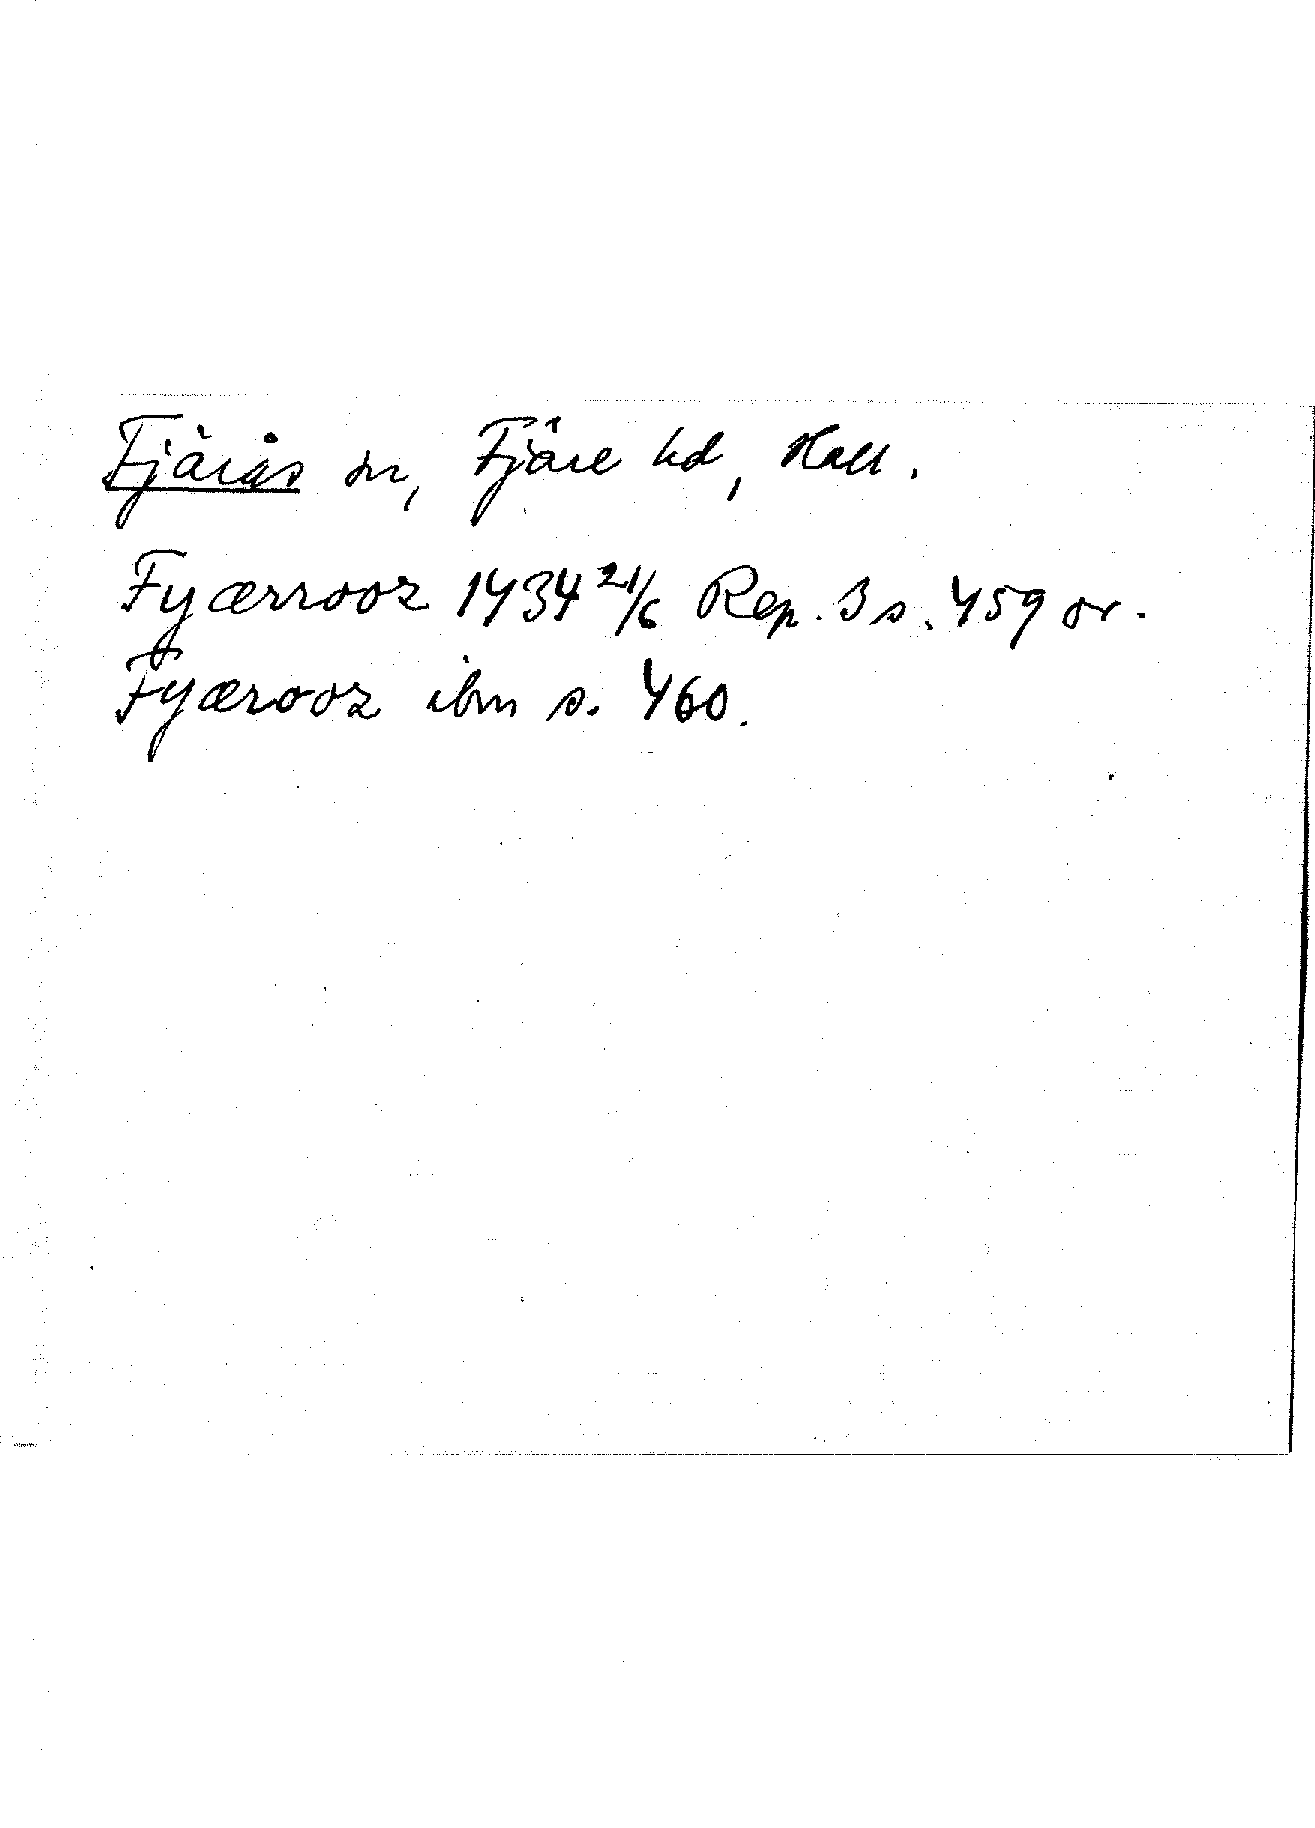 Fjärås sn, Fjäre hd, Hall.
Fyærrooz 1434 21/6 Rep. 3 s. 459 or.
Fyærooz ibm s. 460.